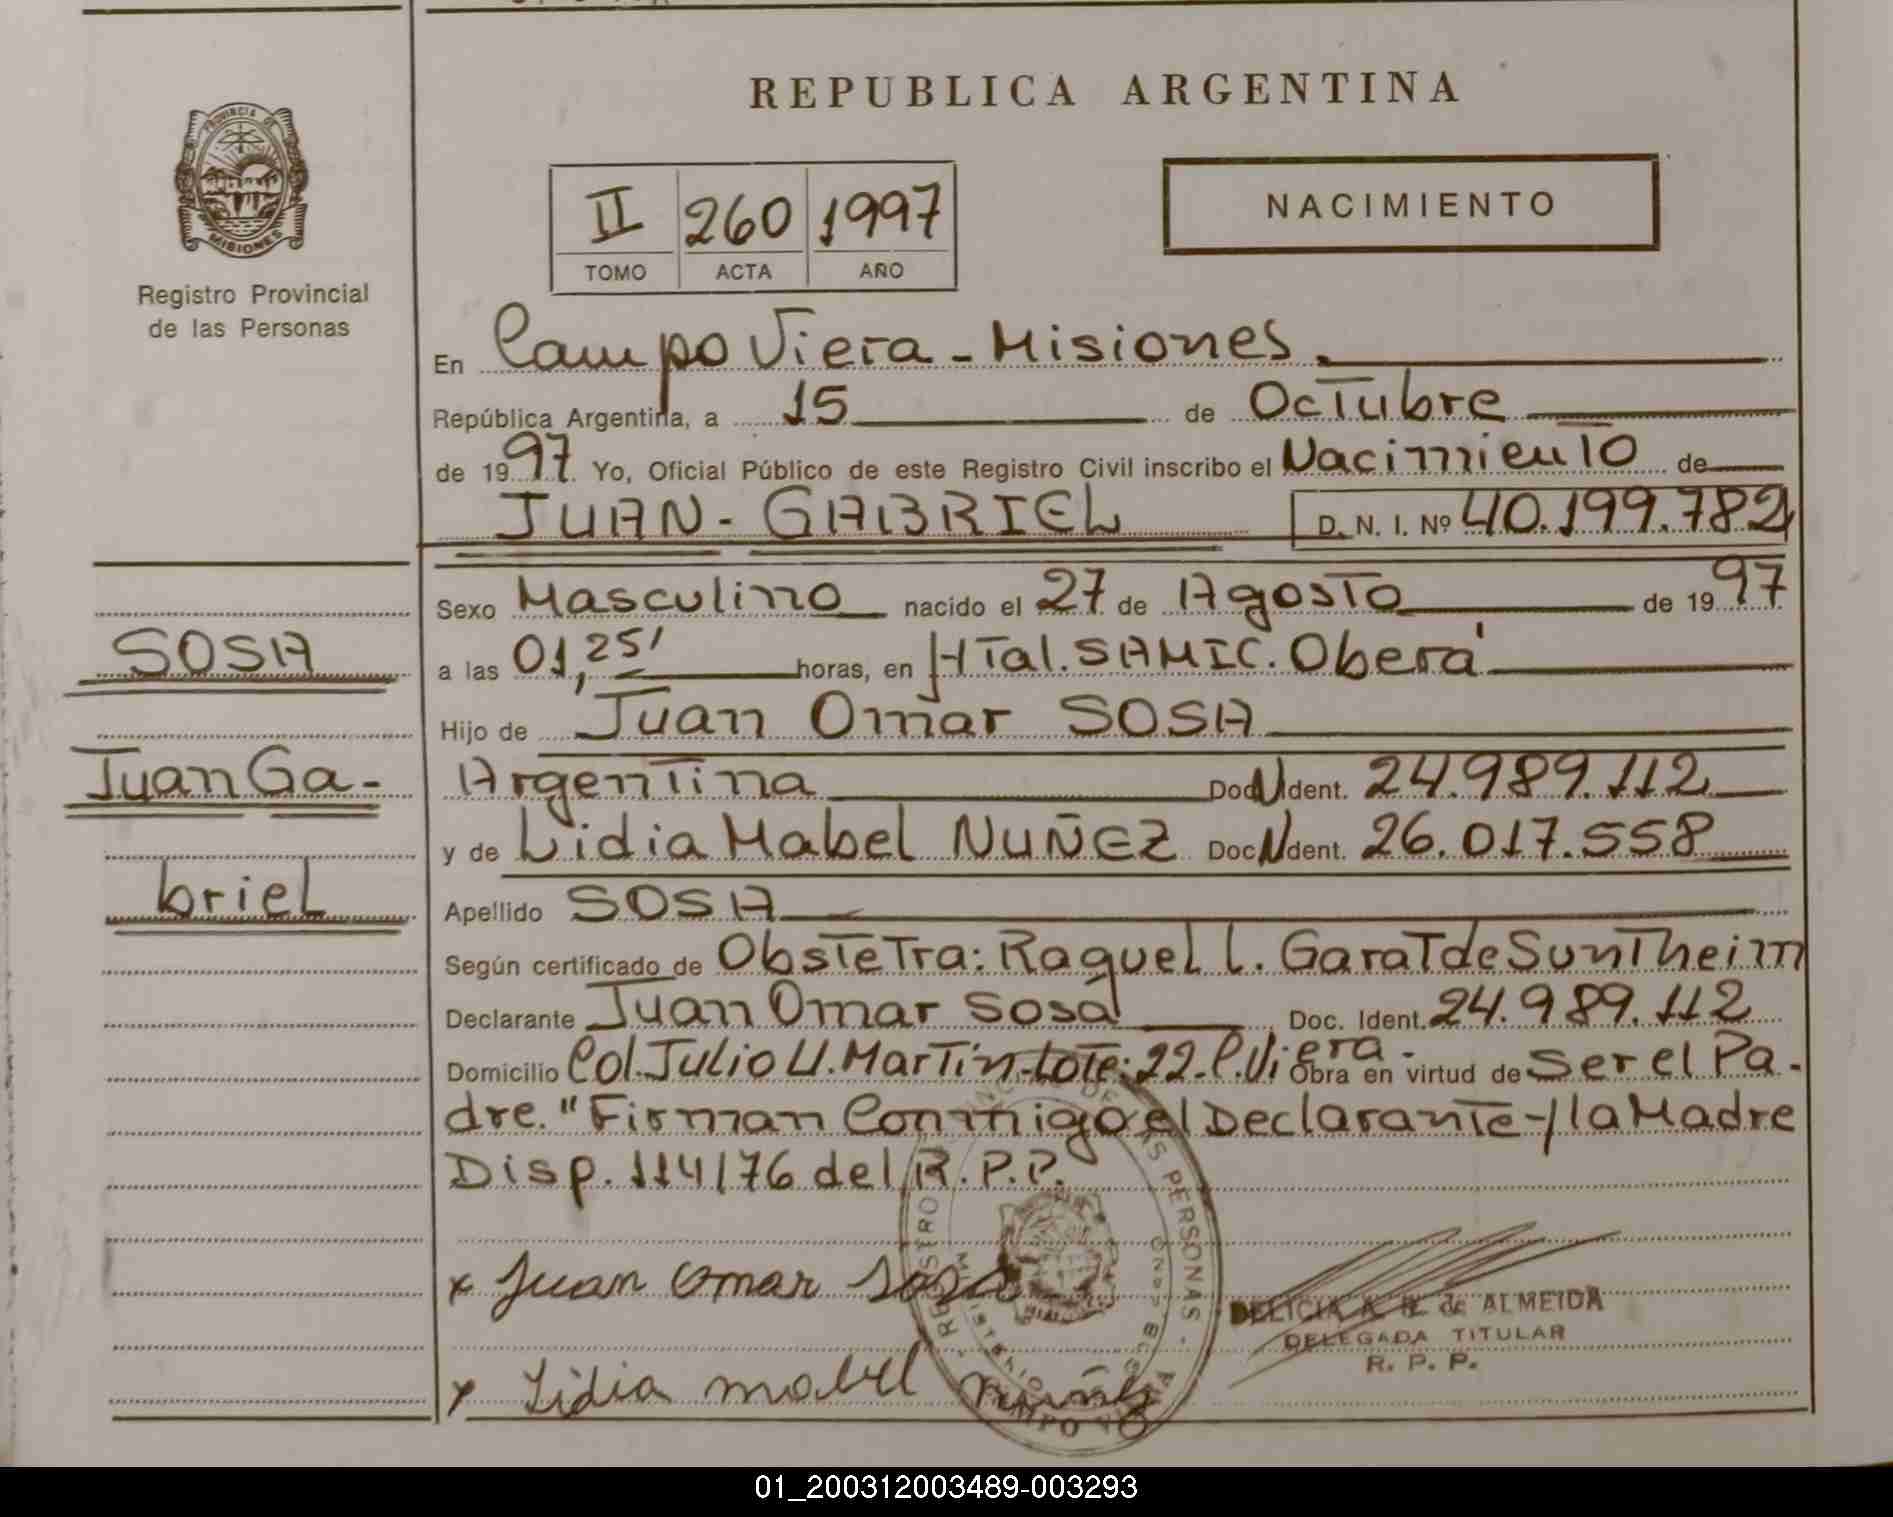 REPUBLICA ARGENTINA
PROVINCIA DE
MISIONES
Registro Provincial
de las Personas
II 260 1997
TOMO ACTA AÑO
NACIMIENTO
En Campo Viera - Misiones.
República Argentina, a 15 de Octubre
de 1997 Yo, Oficial Público de este Registro Civil inscribo el Nacimiento de
JUAN - GABRIEL D. N. I. Nº 40.199.782
Sexo Masculino nacido el 27 de Agosto de 1997
SOSA
a las 01,25' horas, en HTal. SAMIC. Oberá
Hijo de Juan Omar SOSA
Juan Ga-
Argentina Doc N Ident. 24.989.112
y de Lidia Mabel NUÑEZ Doc N Ident. 26.017.558
briel
Apellido SOSA
Según certificado de Obstetra: Raquel L. Garat de Suntheim
Declarante Juan Omar Sosa Doc. Ident. 24.989.112
Domicilio Col. Julio U. Martín - Lote: 22. C. Viera. Obra en virtud de Ser el Pa-
dre. "Firman Conmigo el Declarante - / la Madre
Disp. 114/76 del R. P. P.
x Juan Omar Sosa
DELICIA A. de ALMEIDA
DELEGADA TITULAR
R. P. P.
x Lidia mabel nuñez
REGISTRO DE LAS PERSONAS
CAMPO VIERA
01_200312003489-003293